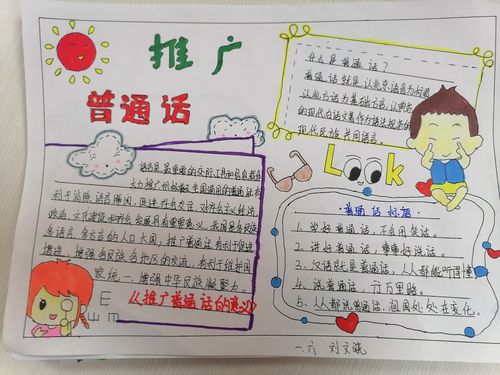 推广
普通话
什么是普通话？
普通话就是以北京语音为标准
以北方话为基础方言，以典范
的现代白话文著作为语法规范的
现代民族共同语言。
Look
语言是最重要的交际工具和信息载体
大力推广和积极全国通用的普通话有
利于消除语言隔阂，促进社会交往，对社会主义经济、
政治、文化建设和社会发展具有重要意义。我国是多民族
多语言、多方言的人口大国，推广普通话有利于促进
增进各民族各地区的交流，有利于维护国
家统一，增强中华民族凝聚力。
《推广普通话的意义》
E
山 m
普通话标语
1、学好普通话，不自用笑话。
2、讲好普通话，事事好说话。
3、汉语就是普通话，人人都能听得懂
4、说普通话，行万里路。
5、人人都说普通话，祖国处处在变化。
一.六 刘文晓